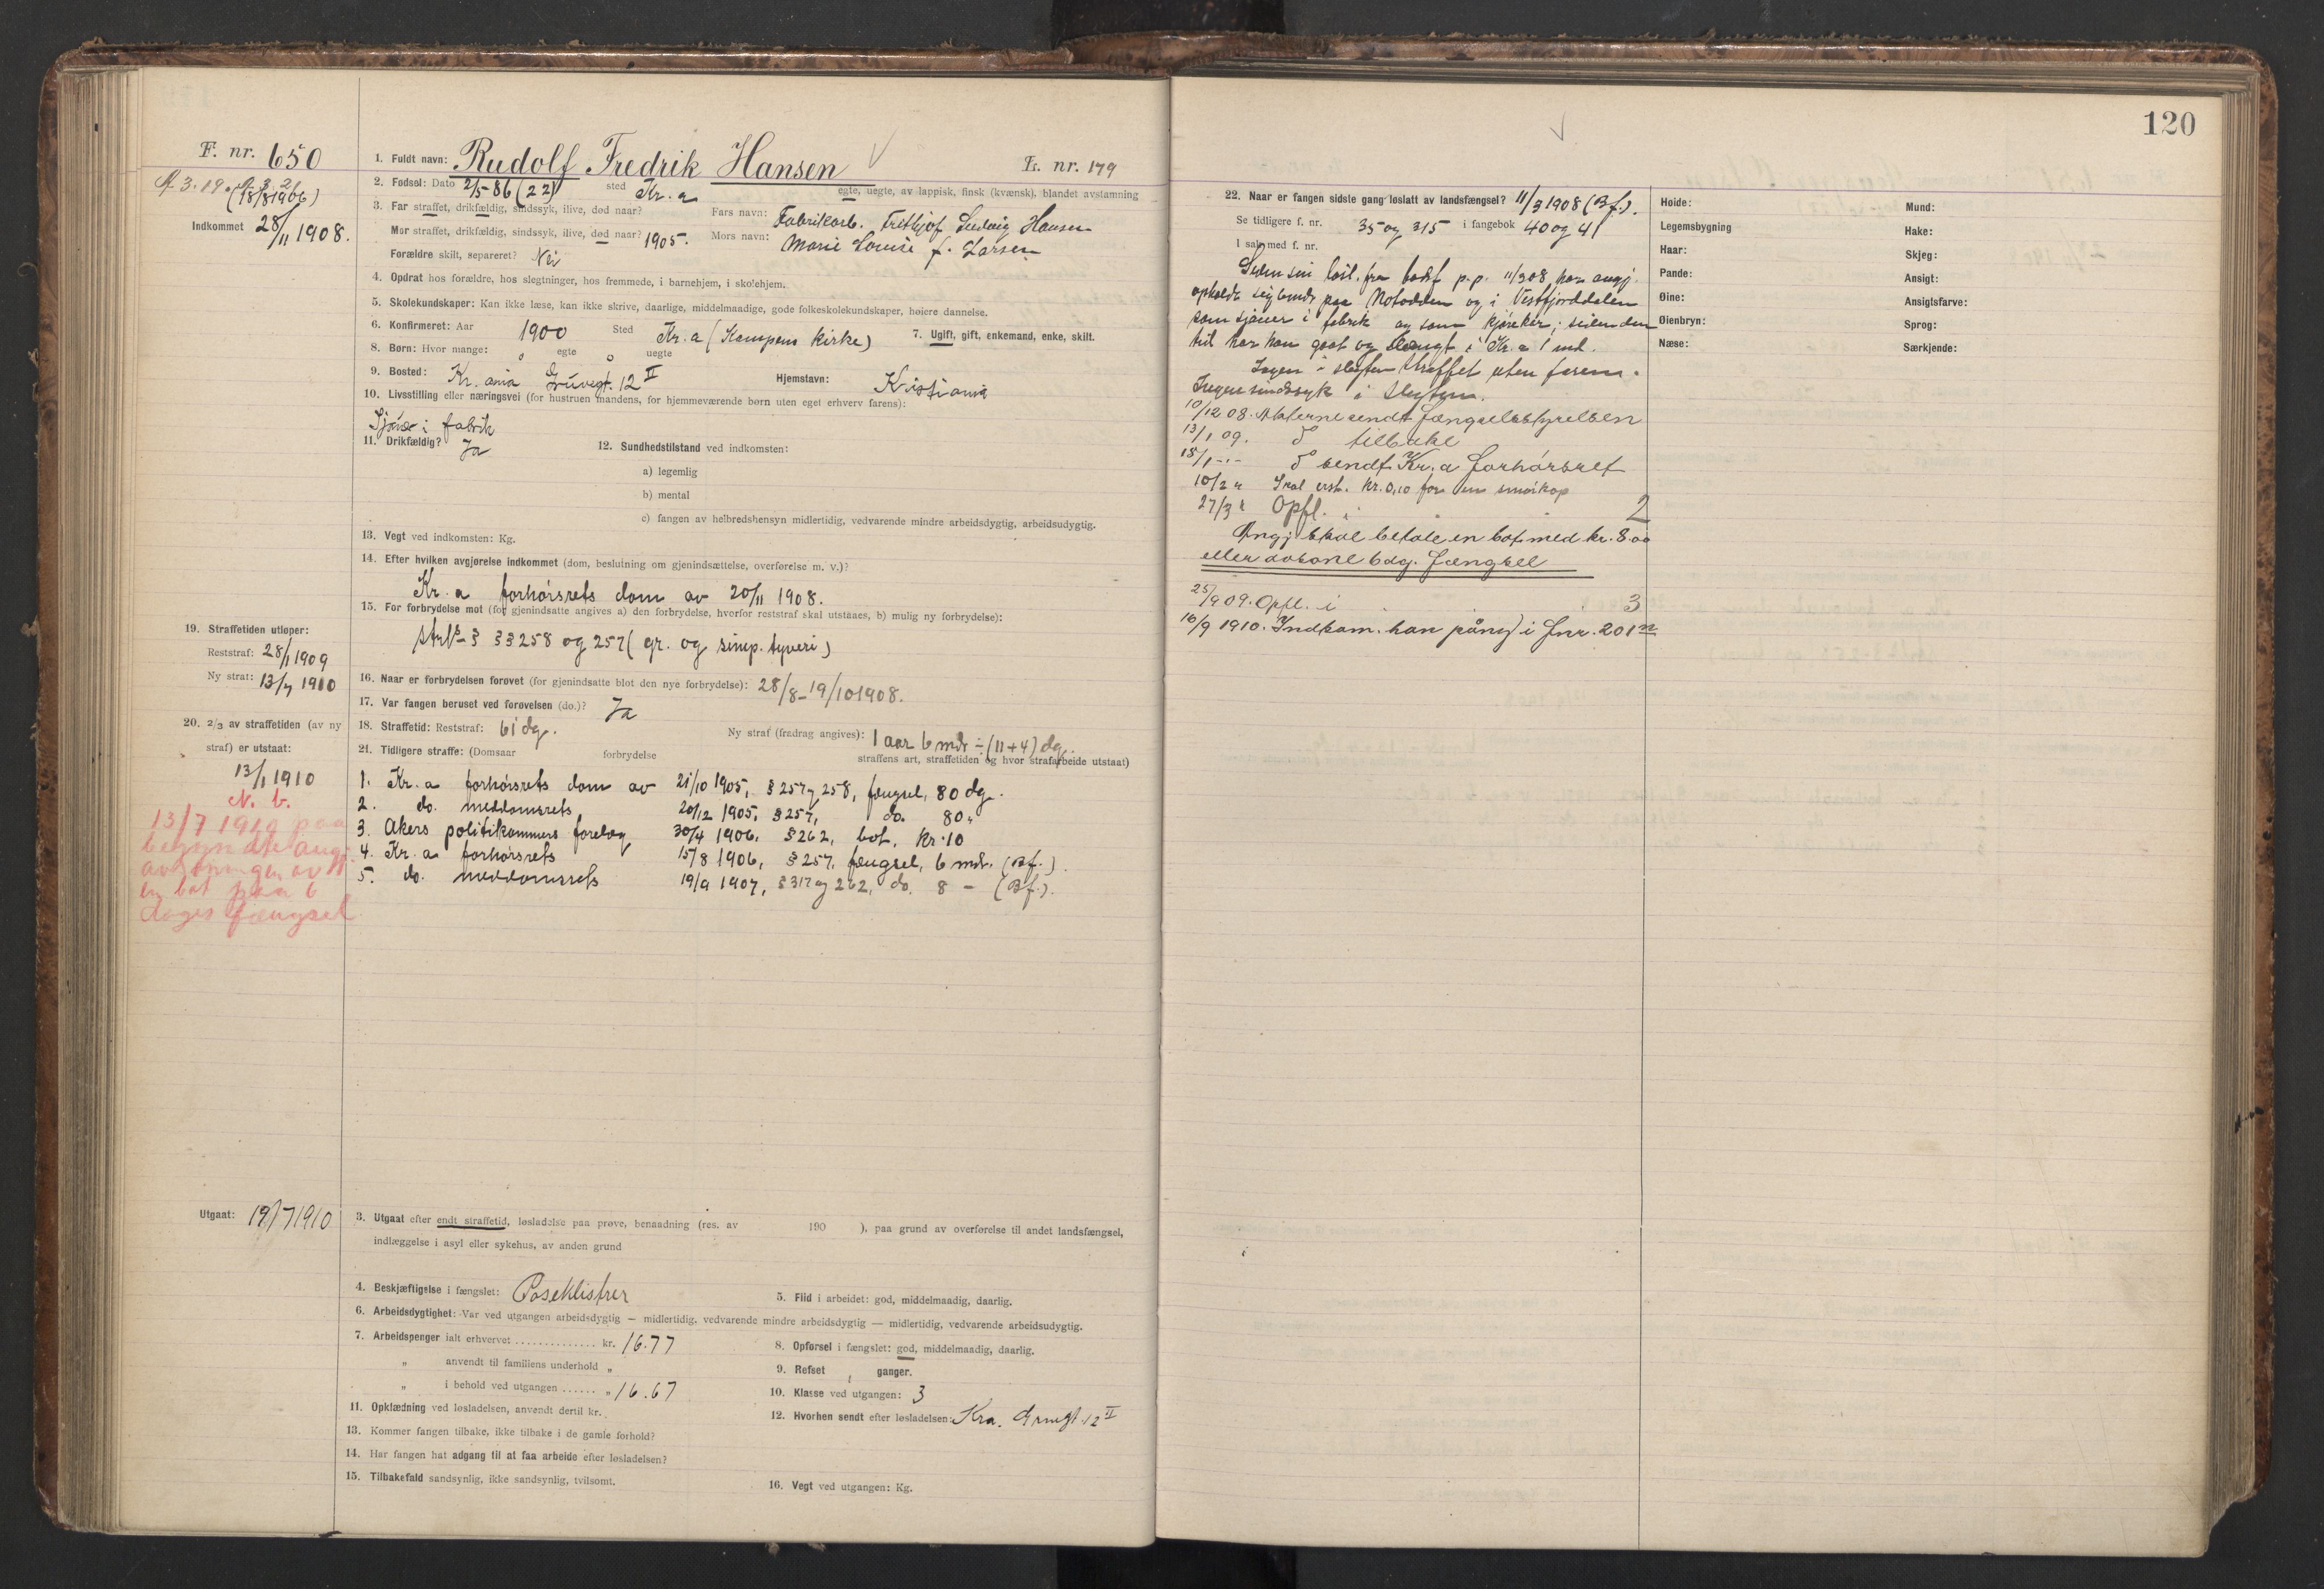 F. nr. 650
(18/8 1906)
Indkommet 28/11 1908.
1. Fuldt navn: Rudolf Fredrik Hansen
L. nr. 179
2. Fødsel: Dato 2/5-86 (22) sted Kr.a egte, uegte, av lappisk, finsk (kvænsk), blandet avstamning
3. Far straffet, drikfældig, sindssyk, ilive, død naar? Fars navn: Fabrikarb. Frithjof Ludvig Hansen
Mor straffet, drikfældig, sindssyk, ilive, død naar? 1905. Mors navn: Marie Louise f. Larsen
Forældre skilt, separeret? Nei
4. Opdrat hos forældre, hos slegtninger, hos fremmede, i barnehjem, i skolehjem.
5. Skolekundskaper: Kan ikke læse, kan ikke skrive, daarlige, middelmaadige, gode folkeskolekundskaper, høiere dannelse.
6. Konfirmeret: Aar 1900 Sted Kr.a (Kampens kirke) 7. Ugift, gift, enkemand, enke, skilt.
8. Børn: Hvor mange: 0 egte 0 uegte
9. Bosted: Kr.ania Gruvegt. 12 II Hjemstavn: Kristiania
10. Livsstilling eller næringsvei (for hustruen mandens, for hjemmeværende børn uten eget erhverv farens):
Sjauer i fabrik
11. Drikfældig? Ja 12. Sundhedstilstand ved indkomsten:
a) legemlig
b) mental
c) fangen av helbredshensyn midlertidig, vedvarende mindre arbeidsdygtig, arbeidsudygtig.
13. Vegt ved indkomsten: Kg.
14. Efter hvilken avgjørelse indkommet (dom, beslutning om gjenindsættelse, overførelse m. v.)?
Kr.a forhörsrets dom av 20/11 1908.
15. For forbrydelse mot (for gjenindsatte angives a) den forbrydelse, hvorfor reststraf skal utstaaes, b) mulig ny forbrydelse):
§§ 258 og 257 (gr. og simp. tyveri)
19. Straffetiden utløper:
Reststraf: 28/1 1909
Ny straf: 13/7 1910
16. Naar er forbrydelsen forøvet (for gjenindsatte blot den nye forbrydelse): 28/8-19/10 1908.
17. Var fangen beruset ved forøvelsen (do.)? Ja
20. 2/3 av straffetiden (av ny
straf) er utstaat:
13/1 1910
18. Straffetid: Reststraf: 61 dg. Ny straf (fradrag angives): 1 aar 6 mdr ÷ (11+4) dg.
21. Tidligere straffe: (Domsaar forbrydelse straffens art, straffetiden og hvor strafarbeide utstaat)
1. Kr.a forhörsrets dom av 21/10 1905, § 257 og 258, fængsel, 80 dg.
2. do. meddomsrets 20/12 1905, § 257, do. 80 "
3. Akers politikammers forelæg 30/4 1906, § 262, bot, kr. 10
4. Kr.a forhörsrets 15/8 1906, § 257, fængsel, 6 mdr. (Bf.).
5. do. meddomsrets 19/9 1907, § 317 og 262, do. 8 - (Bf.).
N. b.
13/7 1910 paa
begyndte angj.
avsoningen av
en bot paa 6
dages fængsel
Utgaat: 19/7 1910
3. Utgaat efter endt straffetid, løsladelse paa prøve, benaadning (res. av 190 ), paa grund av overførelse til andet landsfængsel,
indlæggelse i asyl eller sykehus, av anden grund
4. Beskjæftigelse i fængslet: Poseklistrer 5. Flid i arbeidet: god, middelmaadig, daarlig.
6. Arbeidsdygtighet: Var ved utgangen arbeidsdygtig — midlertidig, vedvarende mindre arbeidsdygtig — midlertidig, vedvarende arbeidsudygtig.
7. Arbeidspenger ialt erhvervet .............. kr. 16.77 8. Opførsel i fængslet: god, middelmaadig, daarlig.
" anvendt til familiens underhold " 9. Refset , ganger.
" i behold ved utgangen ...... " 16.67 10. Klasse ved utgangen: 3
11. Opklædning ved løsladelsen, anvendt dertil kr. 12. Hvorhen sendt efter løsladelsen: Kra. Gruvgt. 12 II
13. Kommer fangen tilbake, ikke tilbake i de gamle forhold?
14. Har fangen hat adgang til at faa arbeide efter løsladelsen?
15. Tilbakefald sandsynlig, ikke sandsynlig, tvilsomt. 16. Vegt ved utgangen: Kg.
120
22. Naar er fangen sidste gang løslatt av landsfængsel? 11/3 1908 (Bf.).
Se tidligere f. nr. 35 og 315 i fangebok 40 og 41
I sak med f. nr.
Siden sin løsl. fra bodsf. p.p. 11/3 08 har angj.
opholdt seg paa Notodden og i Vestfjorddalen
som sjauer i fabrik og som kjørekar; siden den
tid har han gaat og slængt i Kr.a 1 md.
Ingen i slegten straffet uten forem.
Ingen sindssyk i slegten.
10/12 08. Akterne sendt fængselsstyrelsen
13/1 09. do tilbake
15/1 -.- do sendt Kr.a forhörsret
10/2 " Skal erst. kr. 0,10 for en smörkop
27/3 " Opfl. i 2
Angj. skal betale en bot med kr. 8.00
eller avsone 6 dg. fængsel
25/9 09. Opfl. i 3
16/9 1910. Indkom. han påny i fnr. 201
Høide:
Legemsbygning
Haar:
Pande:
Øine:
Øienbryn:
Næse:
Mund:
Hake:
Skjeg:
Ansigt:
Ansigtsfarve:
Sprog:
Særkjende: